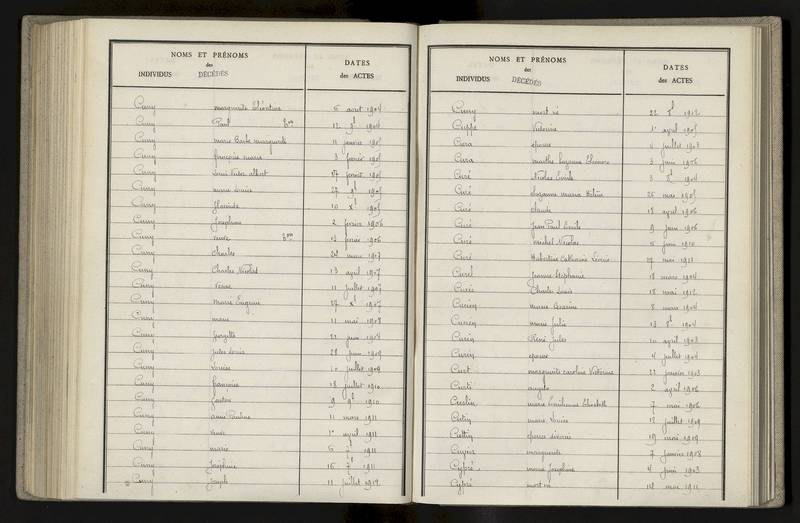 NOMS ET PRÉNOMS
des
INDIVIDUS DÉCÉDÉS
DATES
des ACTES
Cuny marguerite Léontine 6 aout 1904
Cuny Paul 12 9b 1904
Cuny marie Barbe marguerite 11 janvier 1905
Cuny françois marie 3 février 1905
Cuny Louis Victor albert 1905
Cuny marie Louise 27 9b 1905
Cuny 10 xb 1905
Cuny Joséphine 2 février 1906
Cuny veuve 13 février 1906
Cuny Charles mars 1907
Cuny Charles Nicolas 13 avril 1907
Cuny 11 juillet 1907
Cuny marie Eugénie 27 xb 1907
Cuny marie 11 mai 1908
Cuny Georgette 22 juin 1904
Cuny Jules Louis 28 juin 1909
Cuny Louise 10 juillet 1909
Cuny françoise 18 juillet 1910
Cuny Gaston 9 9b 1910
Cuny anne Pauline 11 mars 1911
Cuny veuve 1er avril 1911
Cuny marie 6 7b 1911
Cuny Joséphine 16 7b 1911
Cuny Joseph 11 juillet 1912
NOMS ET PRÉNOMS
des
INDIVIDUS DÉCÉDÉS
DATES
des ACTES
Cuny mort né 22 8b 1912
Cuppe Victorine 1er avril 1905
Cura épouse 4 juillet 1903
Cura marthe Suzanne Eléonore 3 juin 1906
Curé Nicolas Emile 3 8b 1904
Curé Suzanne marie Hélène 26 mai 1905
Curé claude 18 avril 1906
Curé Jean Paul Emile 9 juin 1906
Curé michel Nicolas 6 juin 1910
Curé Hubertine Catherine Léonie 27 mai 1911
Curel Jeanne Stéphanie 18 mars 1904
Charles Louis 18 mai 1912
Curien marie 8 mars 1904
Curien marie Julie 13 8b 1904
Curin René Jules 10 avril 1903
Curin épouse 4 juillet 1904
Curt marguerite caroline Victorine 22 janvier 1903
Curti angelo 2 avril 1906
marie Emilienne Elisabeth 7 mai 1906
marie Louise 12 juillet 1909
épouse 19 mai 1909
marguerite 7 janvier 1908
Cypré marie Joséphine 4 juin 1903
Cypré mort né 14 mai 1911